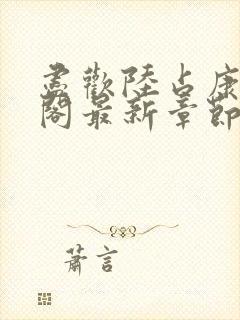 尽歡陸占康
閣最新章節
蕭言